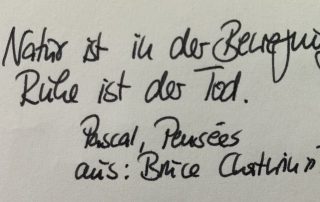 Natur ist in der Bewegung
Ruhe ist der Tod.
Pascal, Pensées
aus: Bruce Chatwin »